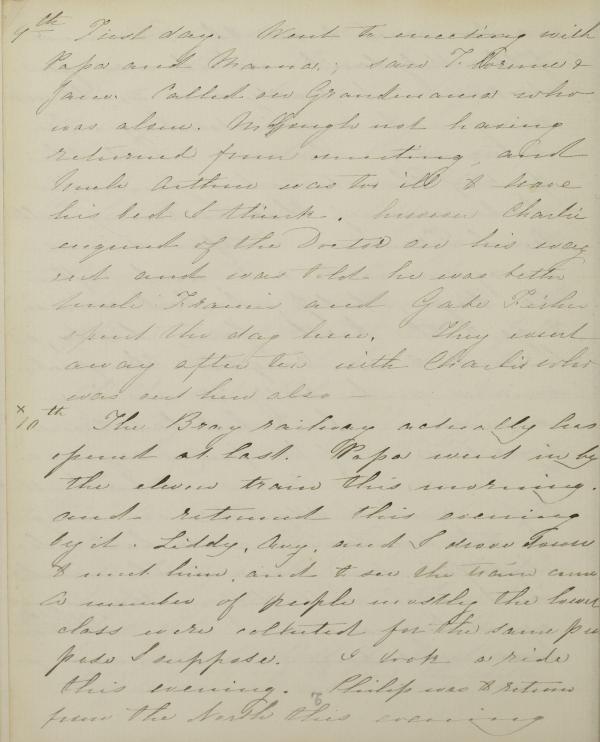 9th First day. Went to meeting with
Papa and Mama; saw T. &
Jane. Called on Grandmama who
was alone. not having
returned from meeting, and
Uncle Arthur was too ill to leave
his bed I think. however Charlie
enquired of the Doctor on his way
out and was told he was better
Uncle Francis and Gabe Fisher
spent the day here. They went
away after tea with Charlie who
was out here also —
x 10th The Bray railway actually has
opened at last. Papa went in by
the eleven train this morning.
and returned this evening
by it. Liddy, Avy, and I drove down
to meet him, and to see the train come
a number of people mostly the lower
class were collected for the same pur
pose I suppose. I took a ride
this evening. Philip was to return
from the North this evening